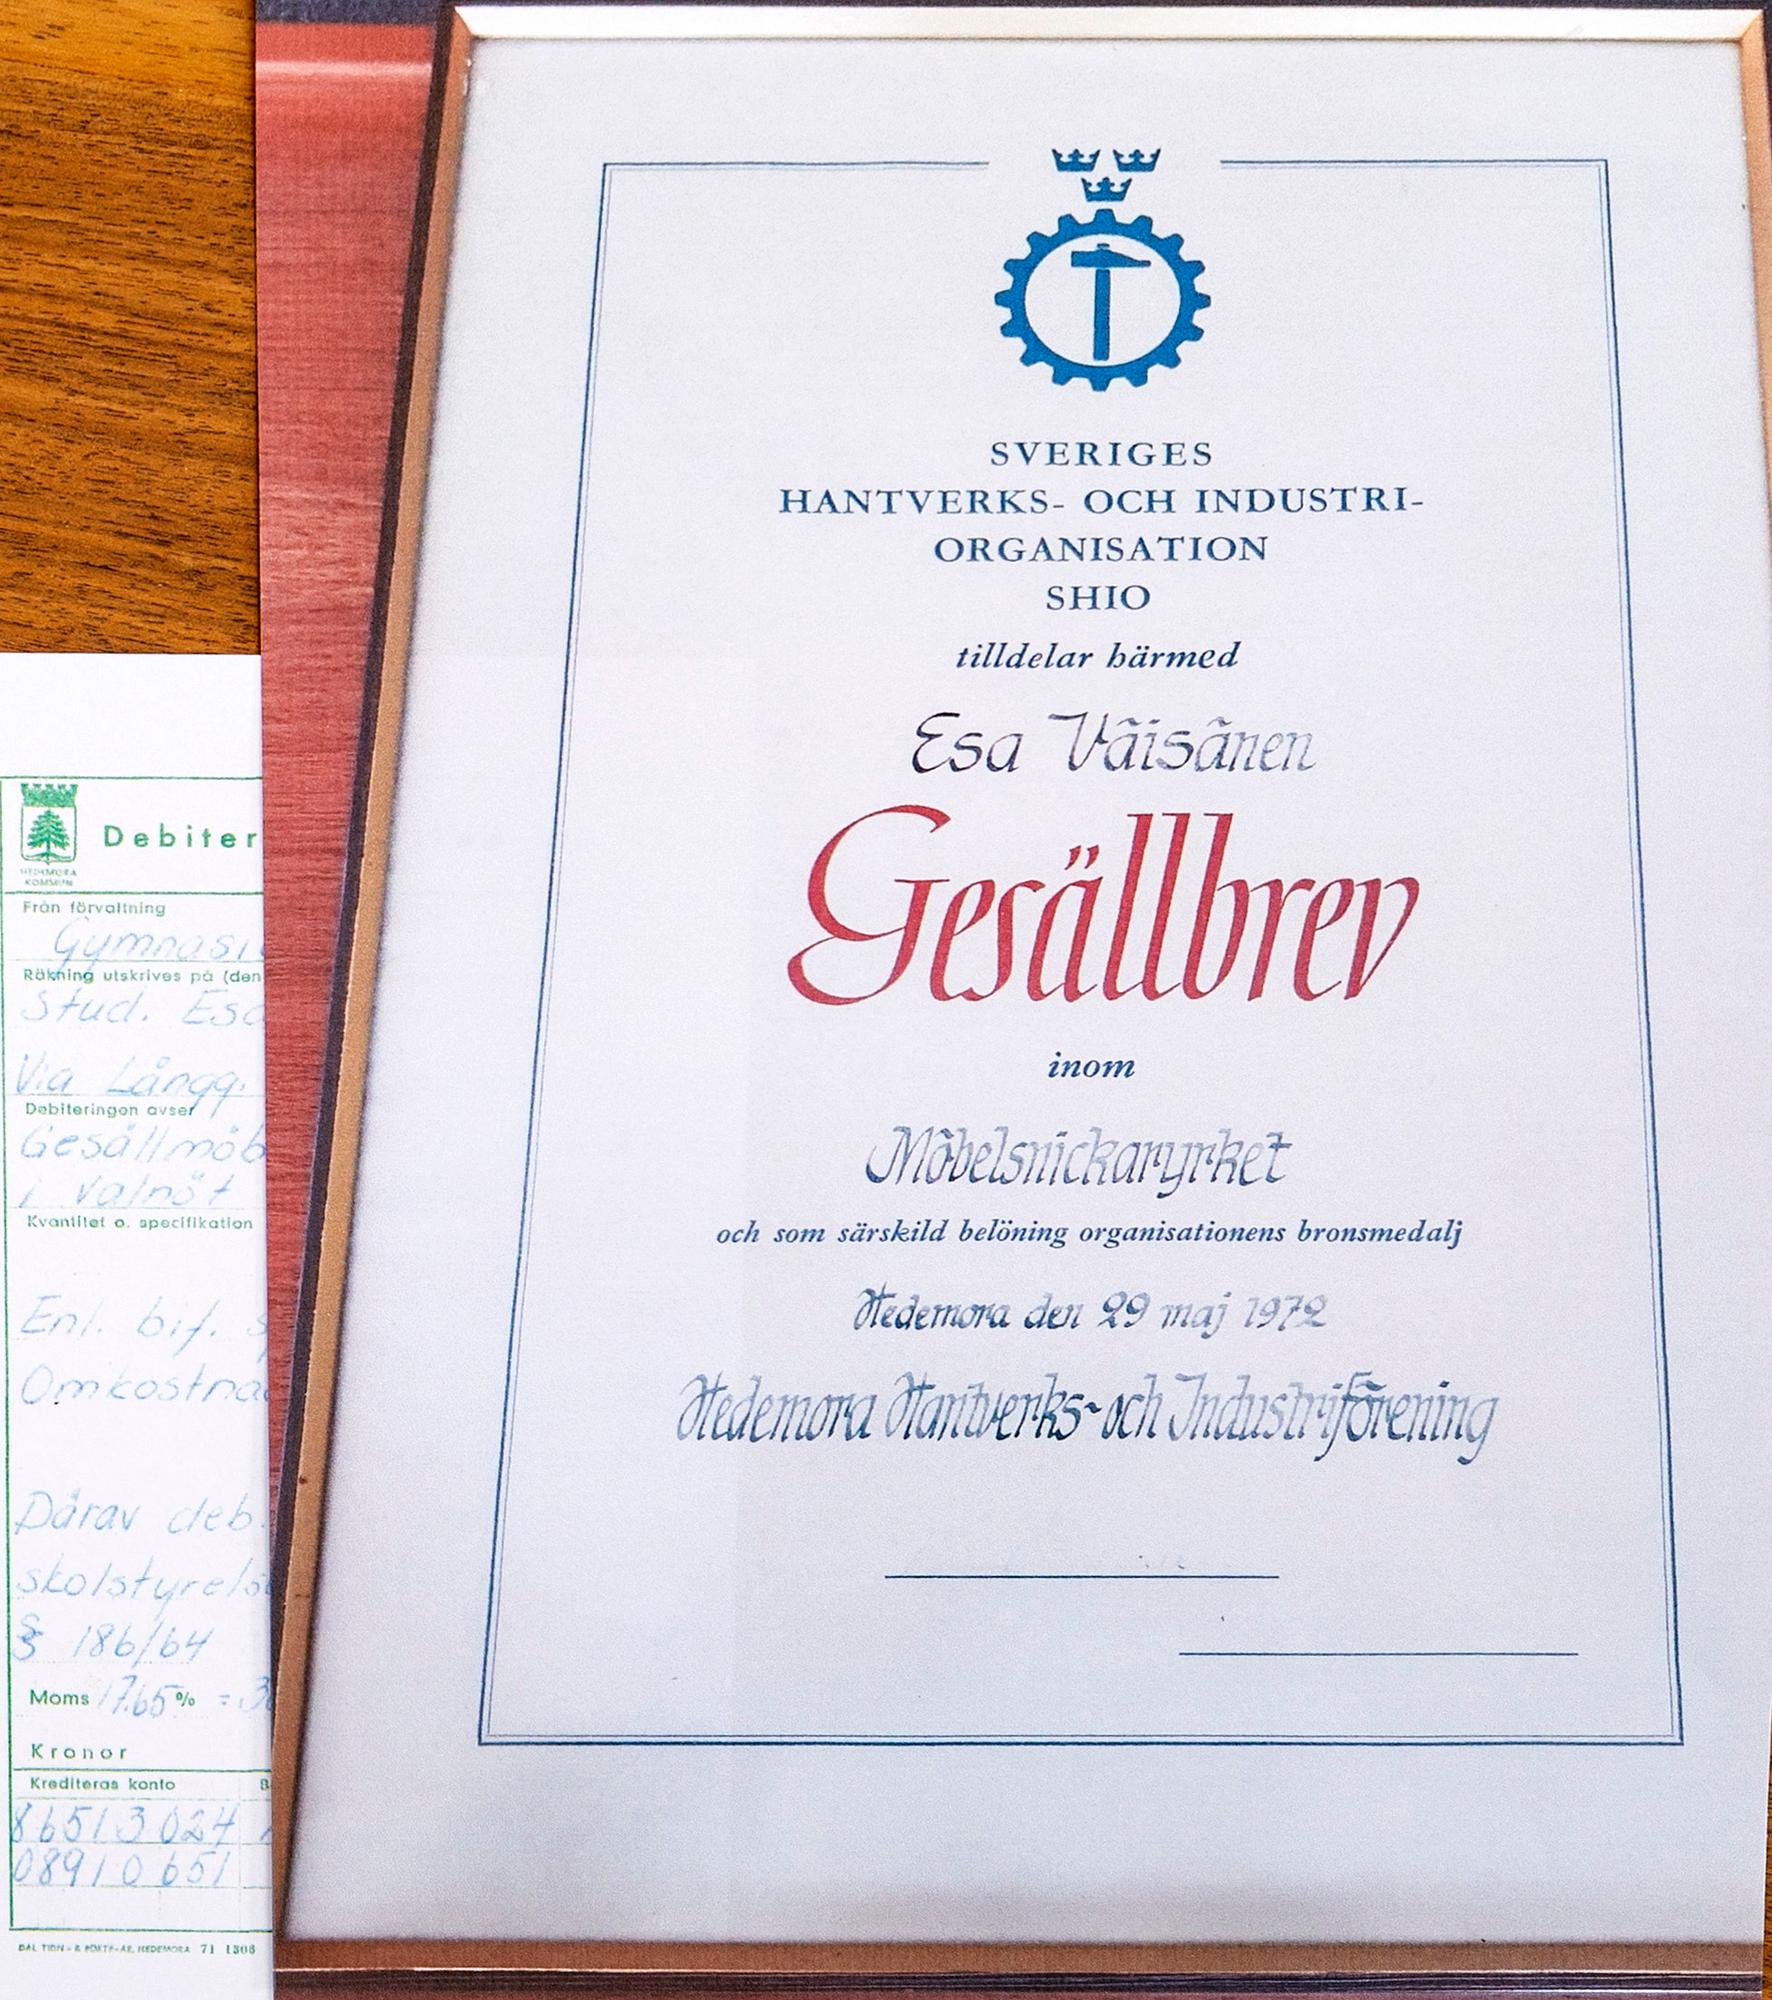 SVERIGES
HANTVERKS- OCH INDUSTRI-
ORGANISATION
SHIO
tilldelar härmed
Esa Väisänen
Gesällbrev
inom
Möbelsnickaryrket
och som särskild belöning organisationens bronsmedalj
Hedemora den 29 maj 1972
Hedemora Hantverks- och Industriförening
HEDEMORA
KOMMUN
Debiter
Från förvaltning
Gymnasi
Räkning utskrives på (den
Stud. Esa
Via Långg.
Debiteringen avser
Gesällmöb
i valnöt
Kvantitet o. specifikation
Enl. bif. s
Omkostna
Därav deb.
skolstyrelse
§ 186/64
Moms 17.65 % = 3
Kronor
Krediteras konto B
86513024
08910651
HEDEMORA 71 1308